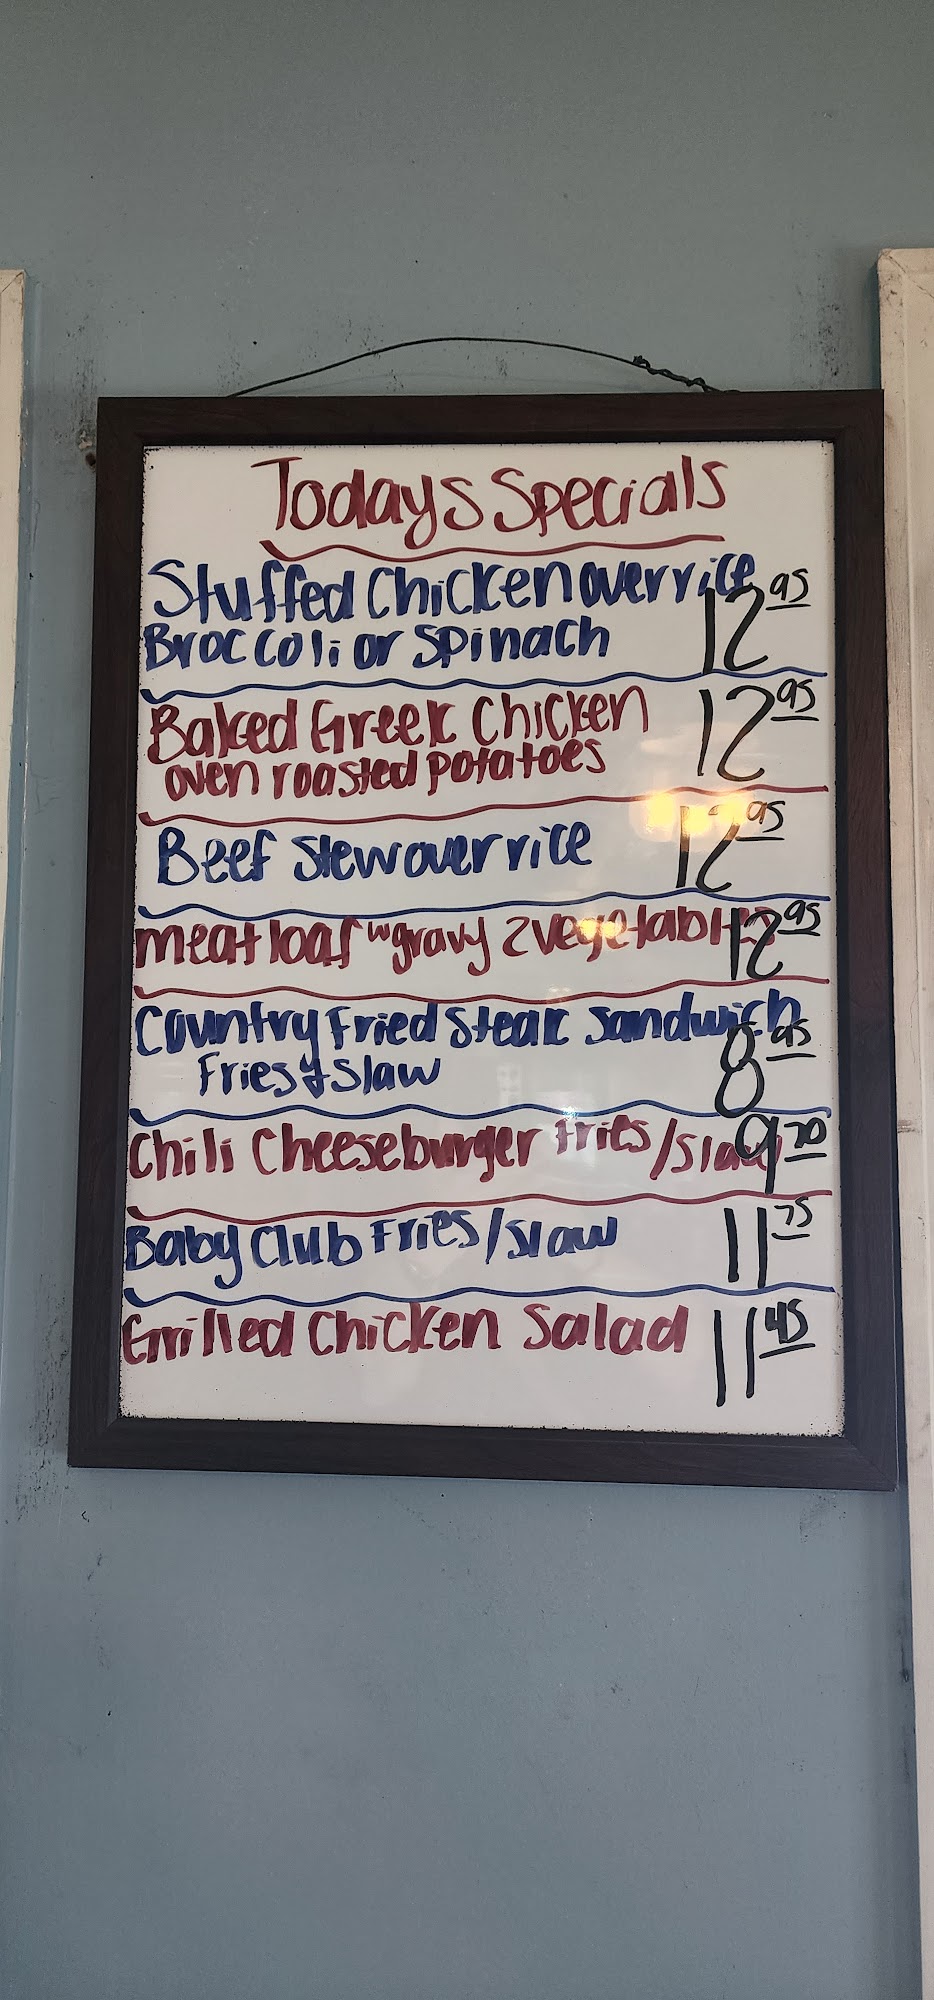 Todays Specials
Stuffed Chicken over rice
Broccoli or Spinach 12 95
Baked Greek Chicken
oven roasted potatoes 12 95
Beef Stew over rice 12 95
meatloaf w gravy 2 vegetables 12 95
Country Fried Steak Sandwich
Fries & Slaw 8 95
Chili Cheeseburger Fries/Slaw 9 70
Baby Club Fries/Slaw 11 75
Grilled Chicken Salad 11 45